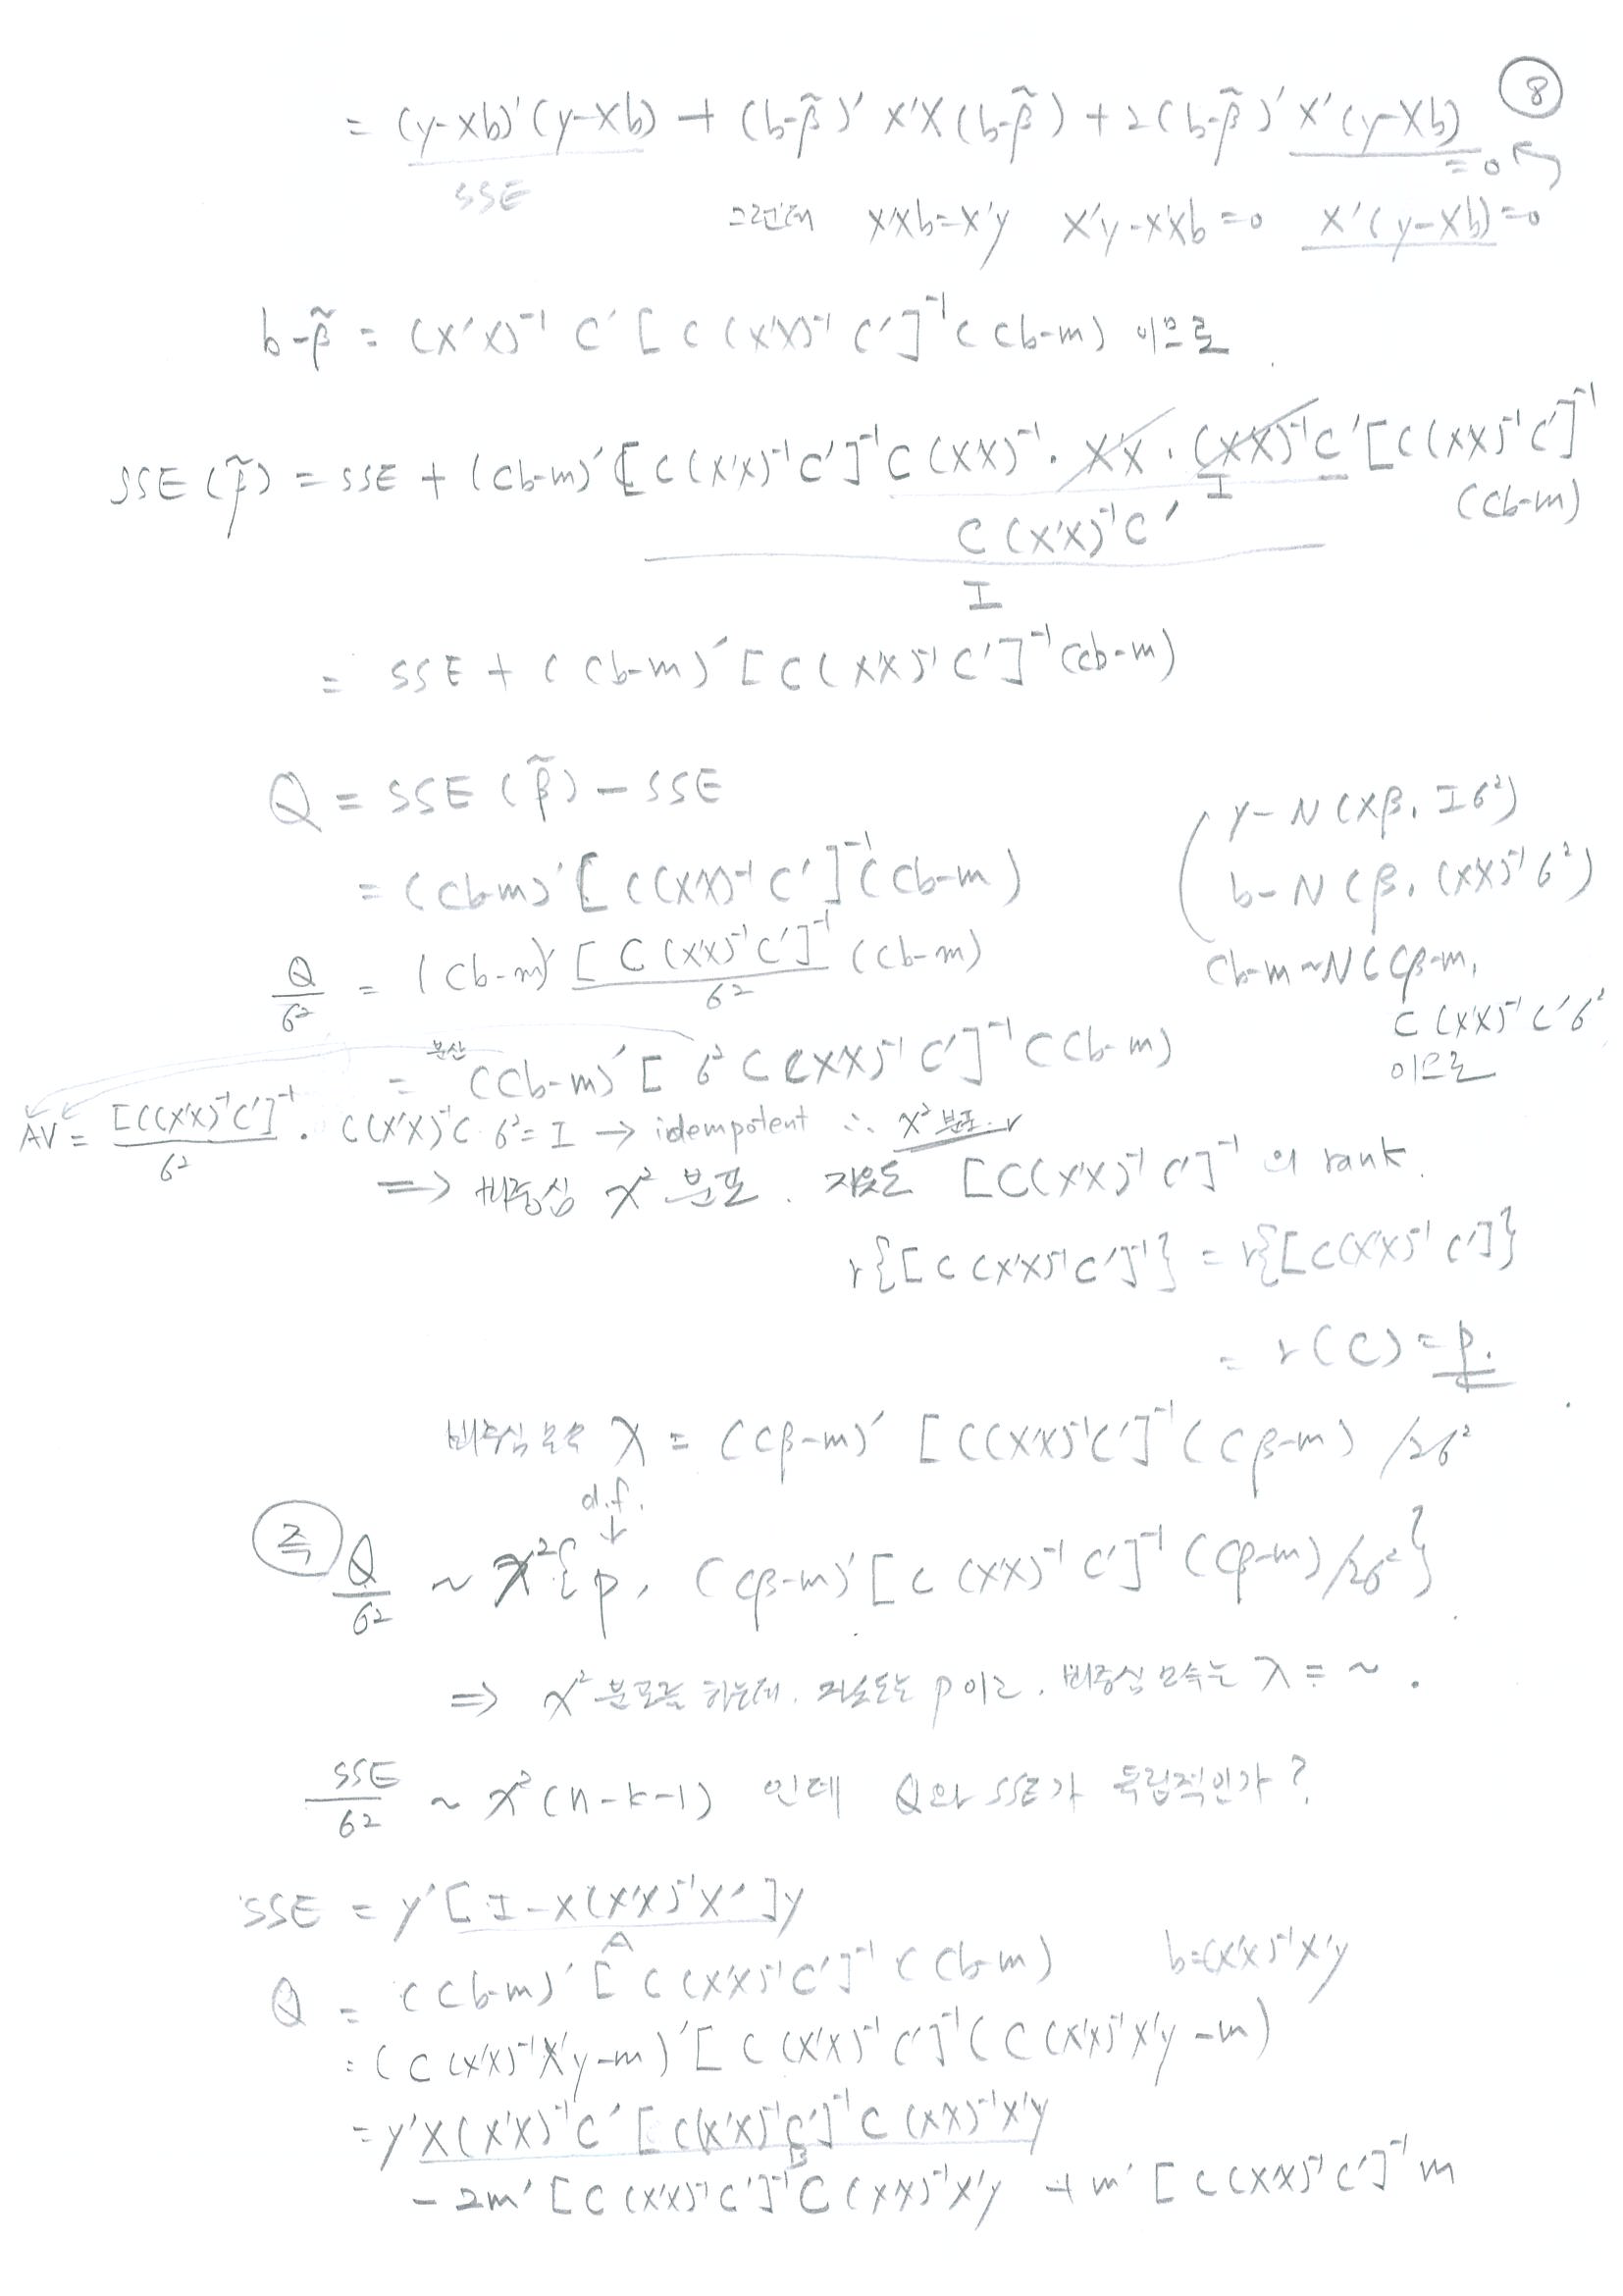 ⑧
= (y-Xb)'(y-Xb) + (b-β̃)' X'X (b-β̃) + 2(b-β̃)' X'(y-Xb)
SSE
= 0
그런데 X'Xb=X'y X'y-X'Xb=0 X'(y-Xb)=0
b-β̃ = (X'X)⁻¹ C' [ C (X'X)⁻¹ C' ]⁻¹ (Cb-m) 이므로
SSE (β̃) = SSE + (Cb-m)' [C(X'X)⁻¹C']⁻¹ C (X'X)⁻¹ · X'X · (X'X)⁻¹ C' [C(X'X)⁻¹C']⁻¹
I
(Cb-m)
C (X'X)⁻¹ C'
I
= SSE + (Cb-m)' [C(X'X)⁻¹ C']⁻¹ (Cb-m)
Q = SSE (β̃) - SSE
y~N(Xβ, Iσ²)
= (Cb-m)' [ C(X'X)⁻¹ C' ]⁻¹ (Cb-m)
b~N(β, (X'X)⁻¹σ²)
Q/σ² = (Cb-m)' [C (X'X)⁻¹ C']⁻¹/σ² (Cb-m)
Cb-m~N(Cβ-m,
C(X'X)⁻¹C'σ²
이므로
분산
= (Cb-m)' [ σ² C (X'X)⁻¹ C' ]⁻¹ (Cb-m)
AV = [C(X'X)⁻¹C']⁻¹/σ² · C(X'X)⁻¹C σ² = I → idempotent ∴ χ² 분포
⇒ 비중심 χ² 분포. 자유도 [C(X'X)⁻¹ C']⁻¹ 의 rank.
r{[C(X'X)⁻¹C']⁻¹} = r{[C(X'X)⁻¹ C']}
= r(C) = p.
비중심 모수 λ = (Cβ-m)' [C(X'X)⁻¹C']⁻¹ (Cβ-m) /2σ²
d.f.
↓
즉 Q/σ² ~ χ²{p, (Cβ-m)' [C (X'X)⁻¹ C']⁻¹ (Cβ-m)/2σ²}
⇒ χ² 분포를 하는데. 자유도는 p이고. 비중심 모수는 λ = ~ .
SSE/σ² ~ χ²(n-k-1) 인데 Q와 SSE가 독립적인가?
SSE = y' [ I - X(X'X)⁻¹X' ] y
A
Q = (Cb-m)' [ C (X'X)⁻¹ C' ]⁻¹ (Cb-m) b=(X'X)⁻¹X'y
= (C (X'X)⁻¹X'y-m)' [ C (X'X)⁻¹ C' ]⁻¹ (C (X'X)⁻¹X'y -m)
= y'X(X'X)⁻¹C' [C(X'X)⁻¹C']⁻¹ C (X'X)⁻¹X'y
B
- 2m' [C (X'X)⁻¹ C']⁻¹ C (X'X)⁻¹X'y + m' [C(X'X)⁻¹ C']⁻¹ m